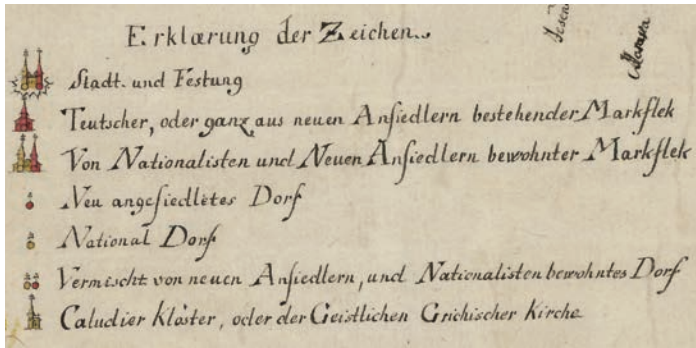 Erklærung der Zeichen.
Stadt. und Festung
Teutscher, oder ganz aus neuen Ansiedlern bestehender Markflek
Von Nationalisten und Neuen Ansiedlern bewohnter Markflek
Neu angesiedletes Dorf
National Dorf
Vermischt von neuen Ansiedlern, und Nationalisten bewohntes Dorf
Caludier Klöster, oder der Geistlichen Grichischer Kirche